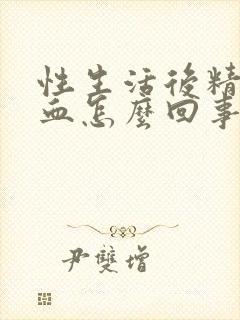 性生活後精
血怎麼回事
尹雙增